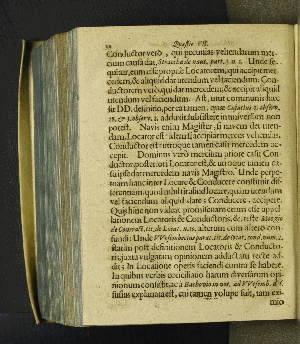 Quæstio VII.
Conductor verò, qui pecunias vehendarum mer-
cium causâ dat, Straccha de naut. part. 3. n. 2. Unde se-
quitur, eum esse propriè Locatorem, qui accipit mer-
cedem, & aliquid dat utendum vel faciendum: Con-
ductorem verò, qui dat mercedem, & accipit aliquid
utendum vel faciendum. Ast, ut communis hæc
sit DD. definitio, per ea tamen, quæ Cujacius 2. observ.
& 3. observ. adduxit, subsistere in universum non
potest. Navis enim Magister, si navem det
dam, Locator est: idem si accipiat merces vehendas,
Conductor est: utroque tamen casu mercedem ac-
cipit. Dominus verò mercium priore casu Con-
ductor, posteriori Locator est, & utroque tamen ca-
su ipse dat mercedem navis Magistro. Unde perpe-
tuam hanc inter Locatorem & Conductorem constituit dif-
ferentiam, quod nihil aliud locare, quàm utendum
vel faciendum aliquid dare; Conducere, accipere.
Quis hinc non videat, promiscuam enim esse appel-
lationem Locatoris & Conductoris, &
alterum cum altero con-
fundi? Unde VVesenbecius
statim post definitionem Locatoris & Conducto-
ris, juxta vulgatam opinionem adductam recte ad-
dit; In Locatione operis faciendi contra se habere.
In quibus verbis conciliatio harum diversarum opi-
nionum continetur, ac à Bachovio in not. ad VVesemb. d. l.
fusius explanata est, cui tamen volupe fuit, tam exi-
mio